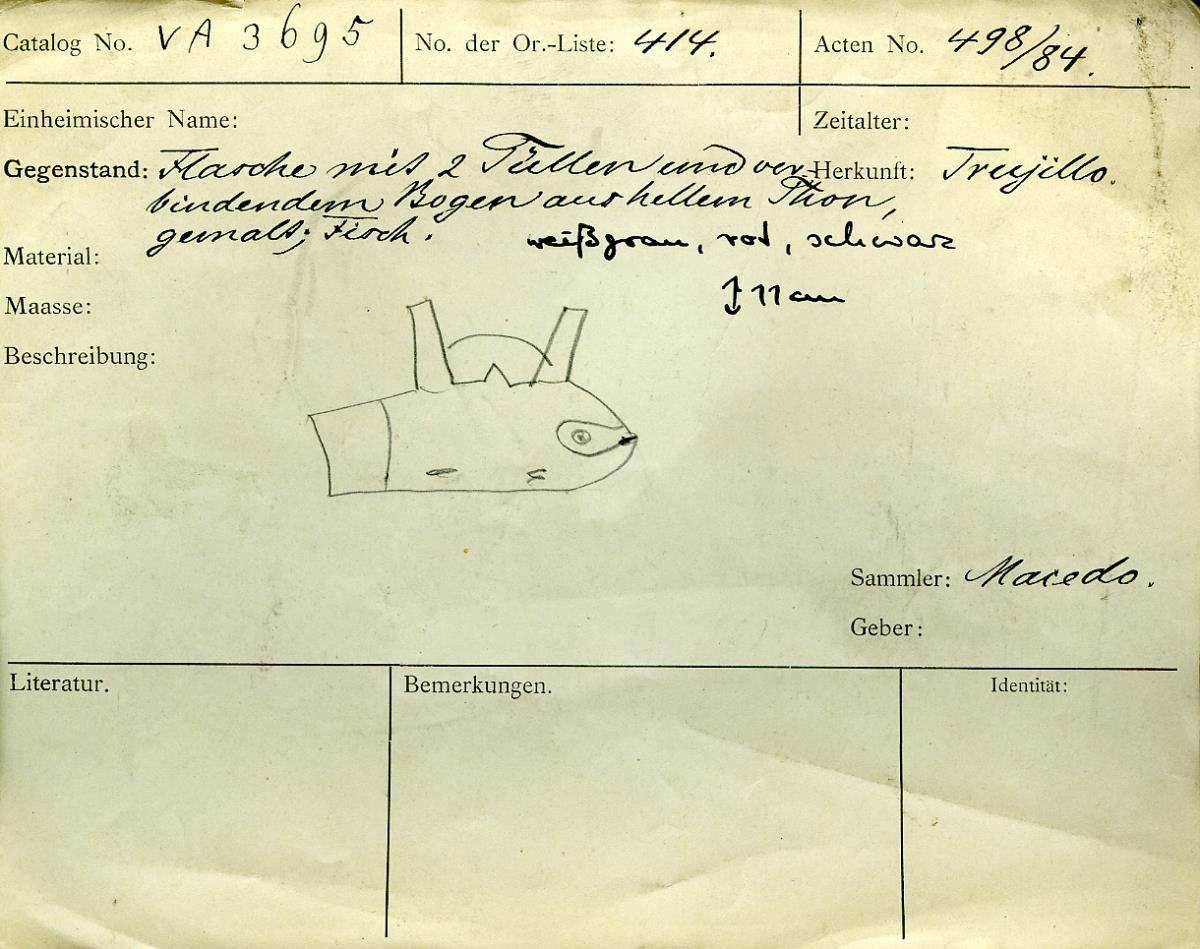 Catalog No. VA 3695 No. der Or.-Liste: 414. Acten No. 498/84.
Einheimischer Name: Zeitalter:
Gegenstand: Flasche mit 2 Tüllen und ver- Herkunft: Trujillo.
bindendem Bogen aus hellem Thon,
gemalt; Fisch. weißgrau, rot, schwarz
Material:
↕ 11 cm
Maasse:
Beschreibung:
Sammler: Macedo.
Geber:
Literatur. Bemerkungen. Identität: